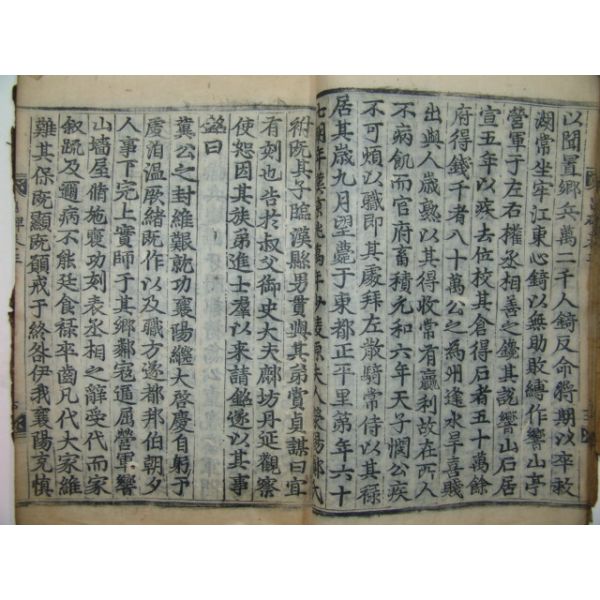 以聞置鄉兵萬二千人錡反命將期以卒救
湖常坐牢江東心錡以無助敗縛作響山亭
營軍于左右權丞相善之鑱其說響山石居
宣五年以疾去位校其倉得石者五十萬餘
府得錢千者八十萬公之為州逢水旱喜賤
出與人歲熟以其得收常有贏利故在所人
不病飢而官府畜積元和六年天子憫公疾
不可煩以職即其處拜左散騎常侍以其祿
居其歲九月望薨于東都正平里第年六十
七明年葬京兆萬年少陵原夫人滎陽鄭氏
祔既其子臨漢縣男貫與其弟賞貞謀曰宜
有刻也告於叔父御史大夫鄜坊丹延觀察
使恕因其族弟進士羣以來請銘遂以其事
銘曰
冀公之封維艱就功襄陽纘大啓慶自躬于
虔洎溫厥緒既作以及職方遂都邦伯朝夕
人事下完上實師于其鄉鄰寇逼屈營軍響
山墻屋脩施褒功刻表丞相之辭受代而家
叙疏及邇病不能廷食祿卒齒凡代大家維
難其保既顯既顛戒于終咎伊我襄陽克慎